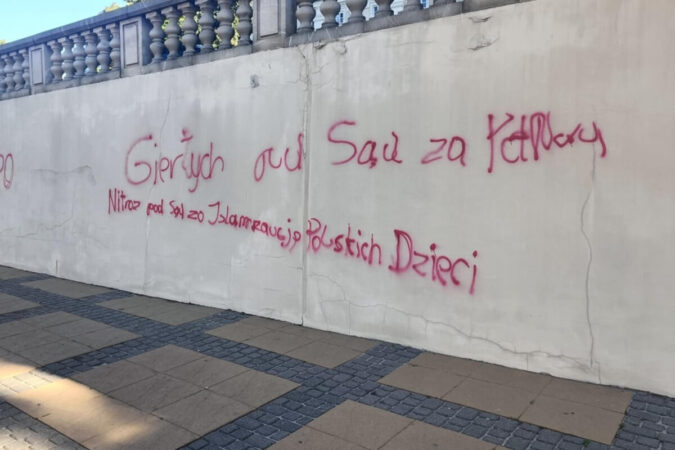 Giertych pod Sąd za PolNord
Nitras pod Sąd za Islamizację Polskich Dzieci